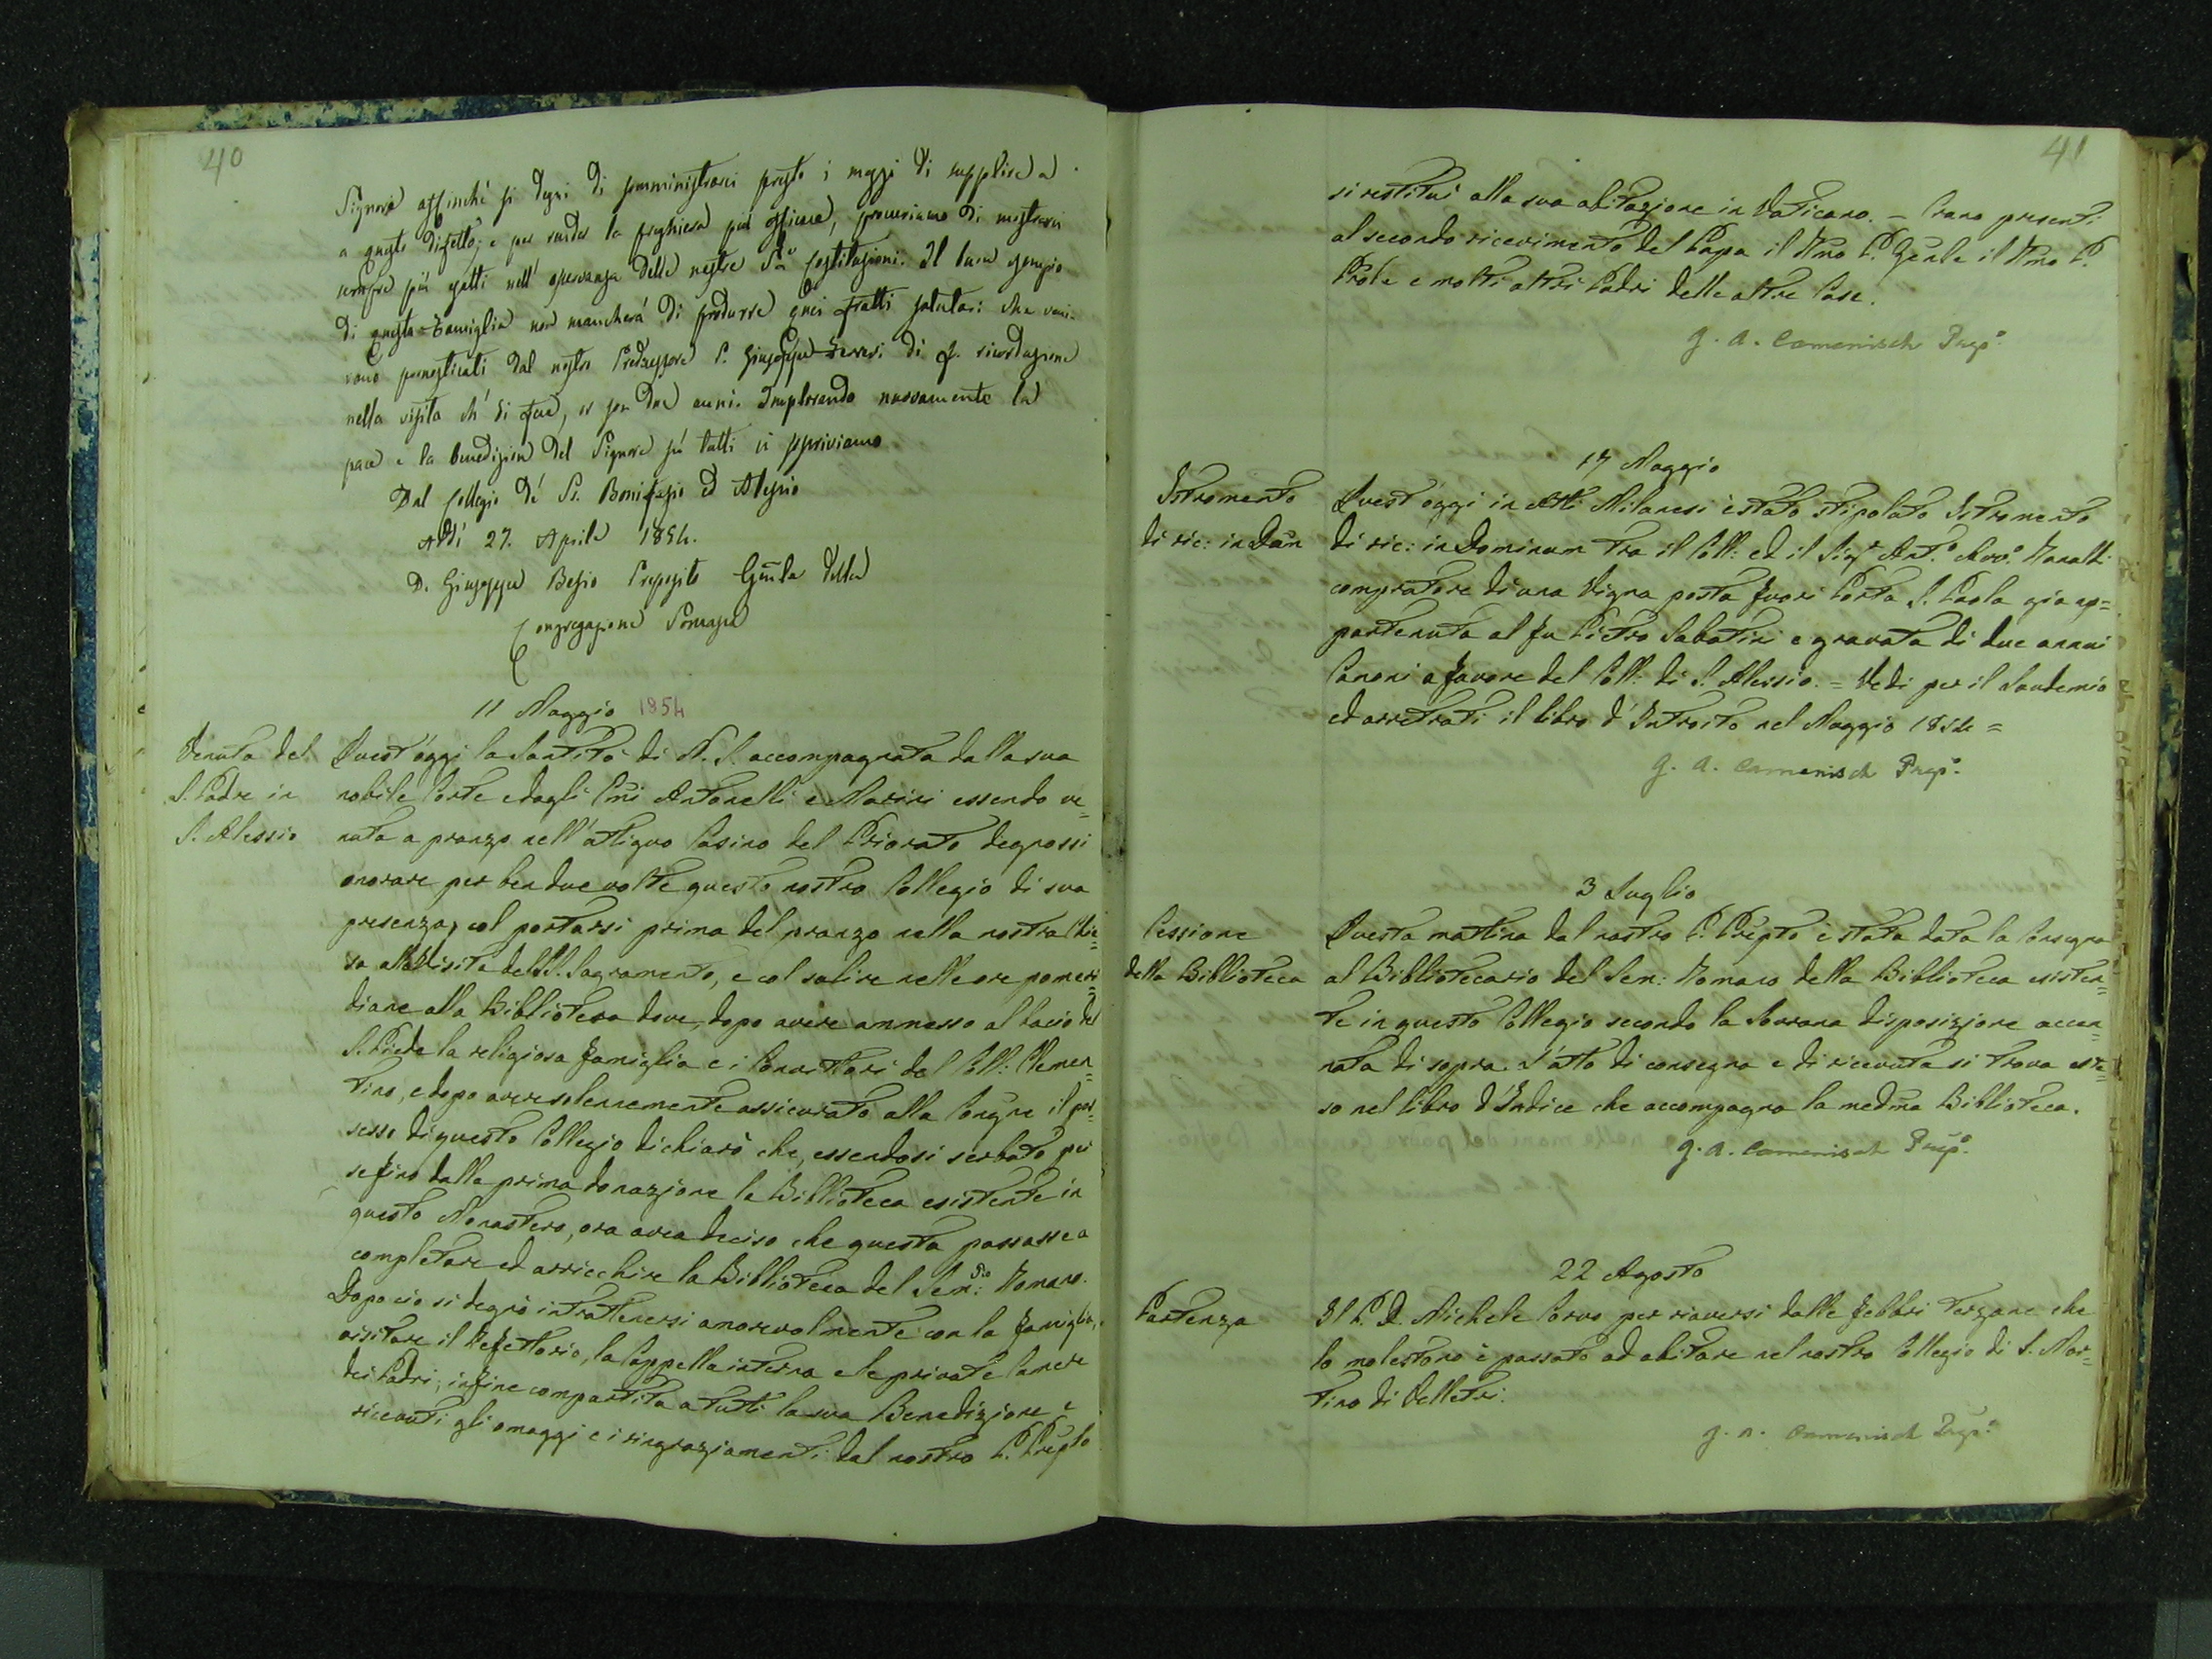 40
Signore affinché si degni di somministrarci presto i mezzi di supplire a
a questo difetto; e per render la preghiera più efficace, procuriamo di mostrarci
sempre più esatti nell' osservanza delle nostre Ste Costituzioni. Il buon esempio
di questa Famiglia non mancherà di produrre quei frutti salutari che veni-
vano pronosticati dal nostro Predecessore P. Giuseppe Ferreri di f. ricordazione
nella visita ch' ei fece, or son due anni. Implorando nuovamente la
pace e la benedizion del Signore su tutti ci sottoscriviamo
Dal Collegio de' SS. Bonifazio ed Alessio
Addì 27. Aprile 1854.
D. Giuseppe Besio Preposito Gñle della
Congregazione Somasca
11 Maggio 1854
Venuta del
S. Padre in
S. Alessio
Quest'oggi la Santità di N. S. accompagnata dalla sua
nobile Corte e dagli Emi Antonelli e Marini essendo ve=
nuta a pranzo nell'attiguo Casino del Priorato degnossi
onorare per ben due volte questo nostro Collegio di sua
presenza, col portarsi prima del pranzo nella nostra Chie=
sa alla visita del SS. Sagramento, e col salire nelle ore pomeri=
diane alla Biblioteca dove, dopo avere ammesso al bacio del
S. Piede la religiosa famiglia e i Convittori del Coll: Clemen=
tino, e dopo aver solennemente assicurato alla Congne il pos=
sesso di questo Collegio dichiarò che, essendosi serbato per
se fino dalla prima donazione la Biblioteca esistente in
questo Monastero, ora avea deciso che questa passasse a
completare ed arricchire la Biblioteca del Sem:rio Romano.
Dopo ciò si degnò intrattenersi amorevolmente con la famiglia,
visitare il Refettorio, la Cappella interna e le private Camere
dei Padri; infine compartita a tutti la sua Benedizione e
ricevuti gli omaggi e i ringraziamenti dal nostro P. Prepto
41
si restituì alla sua abitazione in Vaticano. - Erano presenti
al secondo ricevimento del Papa il Rmo P. Genle il Rmo P.
Prole e molti altri Padri delle altre Case.
G. A. Camenisch Prepo.
17 Maggio
Istromento
di ric: in Dum
Quest'oggi in Atti Milanesi è stato stipolato Istromento
di ric: in Dominum tra il Coll: ed il Sigr Anto. Avvo.
compratore di una Vigna posta fuori Porta S. Paolo già ap=
partenuta al fu Pietro Sabatini e gravata di due annui
Canoni a favore del Coll: di S. Alessio. = Vedi per il Laudemio
ed arretrati il libro d'Introito nel Maggio 1854 =
G. A. Camenisch Prepo.
3 Luglio
Cessione
della Biblioteca
Questa mattina dal nostro P. Prepto è stata data la Consegna
al Bibliotecario del Sem: Romano della Biblioteca esisten=
te in questo Collegio secondo la Sovrana disposizione accen=
nata di sopra. L'atto di consegna e di ricevuta si trova este=
so nel libro d'Indice che accompagna la medma Biblioteca.
G. A. Camenisch Prepo.
22 Agosto
Partenza
Il P. D. Michele Corvo per riaversi dalle febbri terzane che
lo molestano è passato ad abitare nel nostro Collegio di S. Mar=
tino di Velletri.
G. A. Camenisch Prepo.